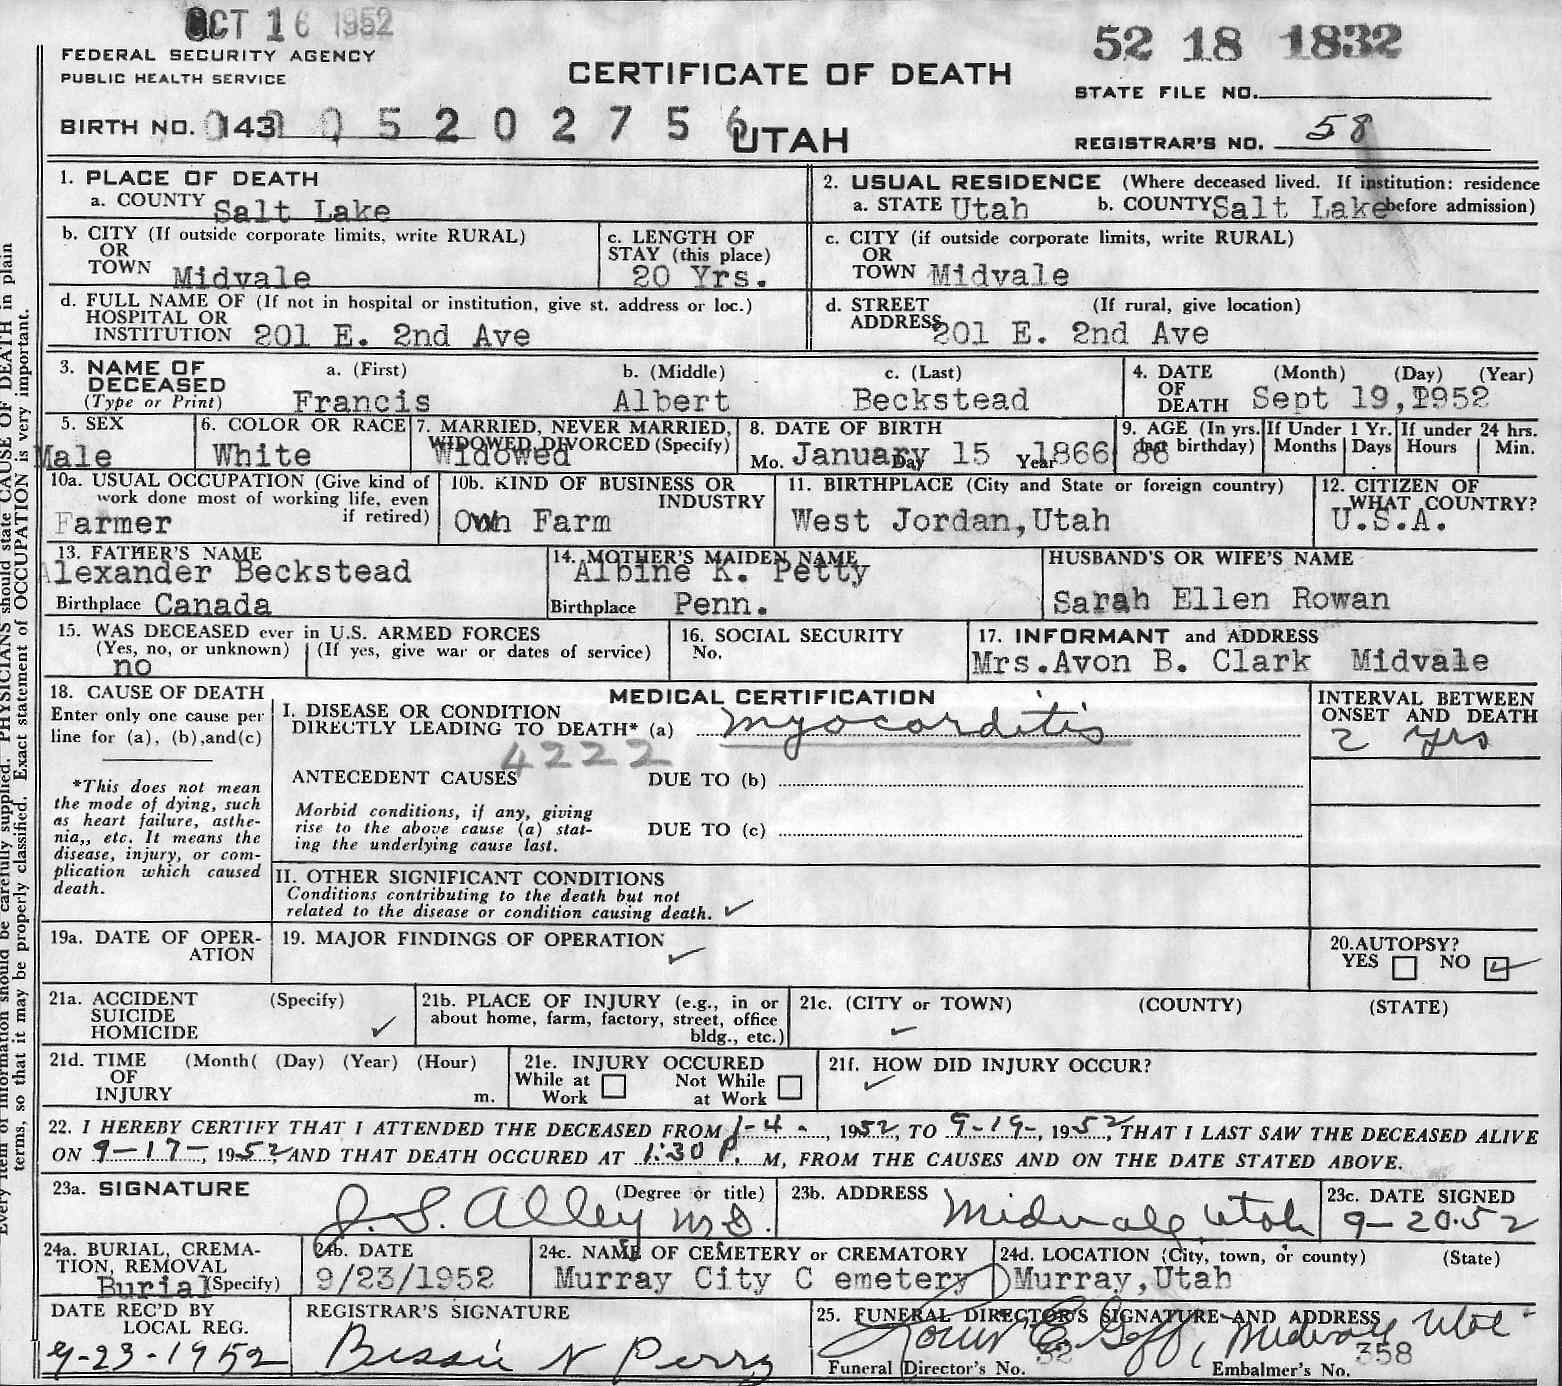 OCT 16 1952
52 18 1832
FEDERAL SECURITY AGENCY
PUBLIC HEALTH SERVICE
CERTIFICATE OF DEATH
STATE FILE NO.
BIRTH NO. 143 0 5 2 0 2 7 5 6
UTAH
REGISTRAR'S NO. 58
1. PLACE OF DEATH
a. COUNTY Salt Lake
2. USUAL RESIDENCE (Where deceased lived. If institution: residence before admission)
a. STATE Utah b. COUNTY Salt Lake
b. CITY (If outside corporate limits, write RURAL)
OR
TOWN Midvale
c. LENGTH OF
STAY (this place)
20 Yrs.
c. CITY (if outside corporate limits, write RURAL)
OR
TOWN Midvale
d. FULL NAME OF (If not in hospital or institution, give st. address or loc.)
HOSPITAL OR
INSTITUTION 201 E. 2nd Ave
d. STREET (If rural, give location)
ADDRESS 201 E. 2nd Ave
3. NAME OF
DECEASED
(Type or Print)
a. (First) b. (Middle) c. (Last)
Francis Albert Beckstead
4. DATE (Month) (Day) (Year)
OF
DEATH Sept 19, 1952
5. SEX
Male
6. COLOR OR RACE
White
7. MARRIED, NEVER MARRIED,
WIDOWED, DIVORCED (Specify)
Widowed
8. DATE OF BIRTH
Mo. January Day 15 Year 1866
9. AGE (In yrs. last birthday)
86
If Under 1 Yr.
Months Days
If under 24 hrs.
Hours Min.
10a. USUAL OCCUPATION (Give kind of
work done most of working life, even
if retired)
Farmer
10b. KIND OF BUSINESS OR
INDUSTRY
Own Farm
11. BIRTHPLACE (City and State or foreign country)
West Jordan, Utah
12. CITIZEN OF
WHAT COUNTRY?
U.S.A.
13. FATHER'S NAME
Alexander Beckstead
Birthplace Canada
14. MOTHER'S MAIDEN NAME
Albine K. Petty
Birthplace Penn.
HUSBAND'S OR WIFE'S NAME
Sarah Ellen Rowan
15. WAS DECEASED ever in U.S. ARMED FORCES
(Yes, no, or unknown) (If yes, give war or dates of service)
no
16. SOCIAL SECURITY
No.
17. INFORMANT and ADDRESS
Mrs.Avon B. Clark Midvale
18. CAUSE OF DEATH
Enter only one cause per
line for (a), (b),and(c)
*This does not mean
the mode of dying, such
as heart failure, asthe-
nia,, etc. It means the
disease, injury, or com-
plication which caused
death.
MEDICAL CERTIFICATION
I. DISEASE OR CONDITION
DIRECTLY LEADING TO DEATH* (a) myocarditis
4222
ANTECEDENT CAUSES DUE TO (b)
Morbid conditions, if any, giving
rise to the above cause (a) stat-
ing the underlying cause last.
DUE TO (c)
II. OTHER SIGNIFICANT CONDITIONS
Conditions contributing to the death but not
related to the disease or condition causing death.
INTERVAL BETWEEN
ONSET AND DEATH
2 yrs
19a. DATE OF OPER-
ATION
19. MAJOR FINDINGS OF OPERATION
20.AUTOPSY?
YES NO
21a. ACCIDENT (Specify)
SUICIDE
HOMICIDE
21b. PLACE OF INJURY (e.g., in or
about home, farm, factory, street, office
bldg., etc.)
21c. (CITY or TOWN) (COUNTY) (STATE)
21d. TIME (Month( (Day) (Year) (Hour)
OF
INJURY m.
21e. INJURY OCCURED
While at Work Not While at Work
21f. HOW DID INJURY OCCUR?
22. I HEREBY CERTIFY THAT I ATTENDED THE DECEASED FROM 1-4-, 1952, TO 9-19-, 1952, THAT I LAST SAW THE DECEASED ALIVE
ON 9-17-, 1952, AND THAT DEATH OCCURED AT 1:30 P. M, FROM THE CAUSES AND ON THE DATE STATED ABOVE.
23a. SIGNATURE (Degree or title)
J. S. Alley MD.
23b. ADDRESS
Midvale Utah
23c. DATE SIGNED
9-20-52
24a. BURIAL, CREMA-
TION, REMOVAL
Burial (Specify)
24b. DATE
9/23/1952
24c. NAME OF CEMETERY or CREMATORY
Murray City C emetery
24d. LOCATION (City, town, or county) (State)
Murray, Utah
DATE REC'D BY
LOCAL REG.
9-23-1952
REGISTRAR'S SIGNATURE
Bessie N Perry
25. FUNERAL DIRECTOR'S SIGNATURE AND ADDRESS
Louis E Goff, Midvale Utah
Funeral Director's No. 52 Embalmer's No. 358
Every item of information should be carefully supplied. PHYSICIANS should state CAUSE OF DEATH in plain
terms, so that it may be properly classified. Exact statement of OCCUPATION is very important.